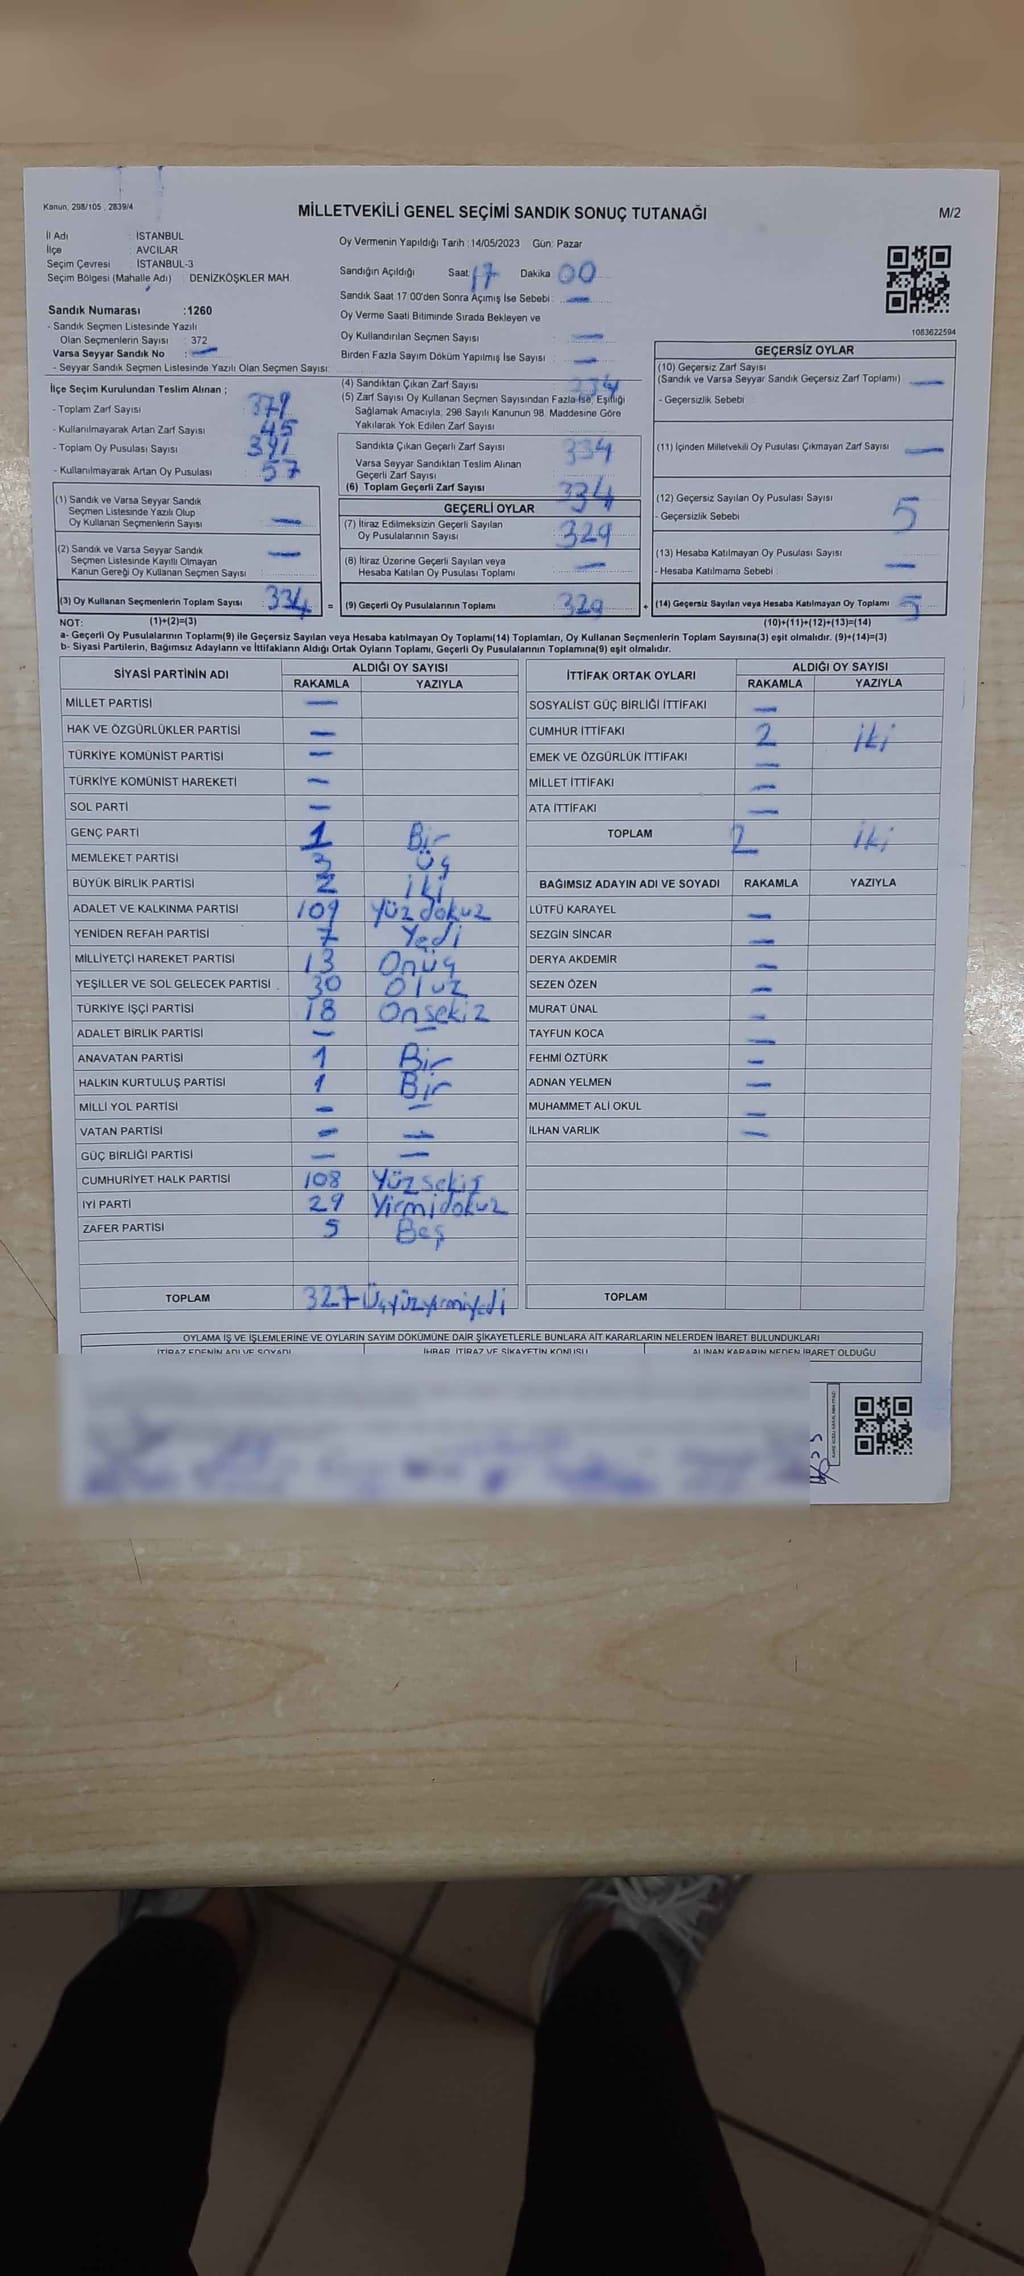 Kanun, 298/105 , 2839/4
MİLLETVEKİLİ GENEL SEÇİMİ SANDIK SONUÇ TUTANAĞI
M/2
İl Adı : İSTANBUL
İlçe : AVCILAR
Seçim Çevresi : İSTANBUL-3
Seçim Bölgesi (Mahalle Adı) : DENİZKÖŞKLER MAH.
Oy Vermenin Yapıldığı Tarih :14/05/2023 Gün: Pazar
Sandığın Açıldığı Saat 17 Dakika 00
Sandık Saat 17:00'den Sonra Açımış İse Sebebi : —
Oy Verme Saati Bitiminde Sırada Bekleyen ve
Oy Kullandırılan Seçmen Sayısı : —
Birden Fazla Sayım Döküm Yapılmış İse Sayısı : —
1083622594
Sandık Numarası :1260
- Sandık Seçmen Listesinde Yazılı
Olan Seçmenlerin Sayısı : 372
Varsa Seyyar Sandık No : —
- Seyyar Sandık Seçmen Listesinde Yazılı Olan Seçmen Sayısı:
İlçe Seçim Kurulundan Teslim Alınan ;
- Toplam Zarf Sayısı : 379
- Kullanılmayarak Artan Zarf Sayısı : 45
- Toplam Oy Pusulası Sayısı : 391
- Kullanılmayarak Artan Oy Pusulası : 57
(1) Sandık ve Varsa Seyyar Sandık
Seçmen Listesinde Yazılı Olup
Oy Kullanan Seçmenlerin Sayısı —
(2) Sandık ve Varsa Seyyar Sandık
Seçmen Listesinde Kayıllı Olmayan
Kanun Gereği Oy Kullanan Seçmen Sayısı —
(3) Oy Kullanan Seçmenlerin Toplam Sayısı 334 =
(4) Sandıktan Çıkan Zarf Sayısı 334
(5) Zarf Sayısı Oy Kullanan Seçmen Sayısından Fazla İse, Eşitliği
Sağlamak Amacıyla, 298 Sayılı Kanunun 98. Maddesine Göre
Yakılarak Yok Edilen Zarf Sayısı
Sandıkta Çıkan Geçerli Zarf Sayısı 334
Varsa Seyyar Sandıktan Teslim Alınan
Geçerli Zarf Sayısı
(6) Toplam Geçerli Zarf Sayısı 334
GEÇERLİ OYLAR
(7) İtiraz Edilmeksizin Geçerli Sayılan
Oy Pusulalarının Sayısı 329
(8) İtiraz Üzerine Geçerli Sayılan veya
Hesaba Katılan Oy Pusulası Toplamı —
(9) Geçerli Oy Pusulalarının Toplamı 329 +
GEÇERSİZ OYLAR
(10) Geçersiz Zarf Sayısı
(Sandık ve Varsa Seyyar Sandık Geçersiz Zarf Toplamı) —
- Geçersizlik Sebebi
(11) İçinden Milletvekili Oy Pusulası Çıkmayan Zarf Sayısı —
(12) Geçersiz Sayılan Oy Pusulası Sayısı 5
- Geçersizlik Sebebi
(13) Hesaba Katılmayan Oy Pusulası Sayısı
- Hesaba Katılmama Sebebi : —
(14) Geçersiz Sayılan veya Hesaba Katılmayan Oy Toplamı 5
NOT: (1)+(2)=(3) (10)+(11)+(12)+(13)=(14)
a- Geçerli Oy Pusulalarının Toplamı(9) ile Geçersiz Sayılan veya Hesaba katılmayan Oy Toplamı(14) Toplamları, Oy Kullanan Seçmenlerin Toplam Sayısına(3) eşit olmalıdır. (9)+(14)=(3)
b- Siyasi Partilerin, Bağımsız Adayların ve İttifakların Aldığı Ortak Oyların Toplamı, Geçerli Oy Pusulalarının Toplamına(9) eşit olmalıdır.
SİYASİ PARTİNİN ADI ALDIĞI OY SAYISI
RAKAMLA YAZIYLA
MİLLET PARTİSİ —
HAK VE ÖZGÜRLÜKLER PARTİSİ —
TÜRKİYE KOMÜNİST PARTİSİ —
TÜRKİYE KOMÜNİST HAREKETİ —
SOL PARTİ —
GENÇ PARTİ 1 Bir
MEMLEKET PARTİSİ 3 Üç
BÜYÜK BİRLİK PARTİSİ 2 iki
ADALET VE KALKINMA PARTİSİ 109 Yüzdokuz
YENİDEN REFAH PARTİSİ 7 Yedi
MİLLİYETÇİ HAREKET PARTİSİ 13 Onüç
YEŞİLLER VE SOL GELECEK PARTİSİ 30 Otuz
TÜRKİYE İŞÇİ PARTİSİ 18 Onsekiz
ADALET BİRLİK PARTİSİ — —
ANAVATAN PARTİSİ 1 Bir
HALKIN KURTULUŞ PARTİSİ 1 Bir
MİLLİ YOL PARTİSİ — —
VATAN PARTİSİ — —
GÜÇ BİRLİĞİ PARTİSİ — —
CUMHURİYET HALK PARTİSİ 108 Yüzsekiz
İYİ PARTİ 29 Yirmidokuz
ZAFER PARTİSİ 5 Beş
TOPLAM 327 Üçyüzyirmiyedi
İTTİFAK ORTAK OYLARI ALDIĞI OY SAYISI
RAKAMLA YAZIYLA
SOSYALİST GÜÇ BİRLİĞİ İTTİFAKI —
CUMHUR İTTİFAKI 2 iki
EMEK VE ÖZGÜRLÜK İTTİFAKI —
MİLLET İTTİFAKI —
ATA İTTİFAKI —
TOPLAM 2 iki
BAĞIMSIZ ADAYIN ADI VE SOYADI RAKAMLA YAZIYLA
LÜTFÜ KARAYEL —
SEZGİN SİNCAR —
DERYA AKDEMİR —
SEZEN ÖZEN —
MURAT ÜNAL —
TAYFUN KOCA —
FEHMİ ÖZTÜRK —
ADNAN YELMEN —
MUHAMMET ALİ OKUL —
İLHAN VARLIK —
TOPLAM
OYLAMA İŞ VE İŞLEMLERİNE VE OYLARIN SAYIM DÖKÜMÜNE DAİR ŞİKAYETLERLE BUNLARA AİT KARARLARIN NELERDEN İBARET BULUNDUKLARI
İTİRAZ EDENİN ADI VE SOYADI İHBAR, İTİRAZ VE ŞİKAYETİN KONUSU ALINAN KARARIN NEDEN İBARET OLDUĞU